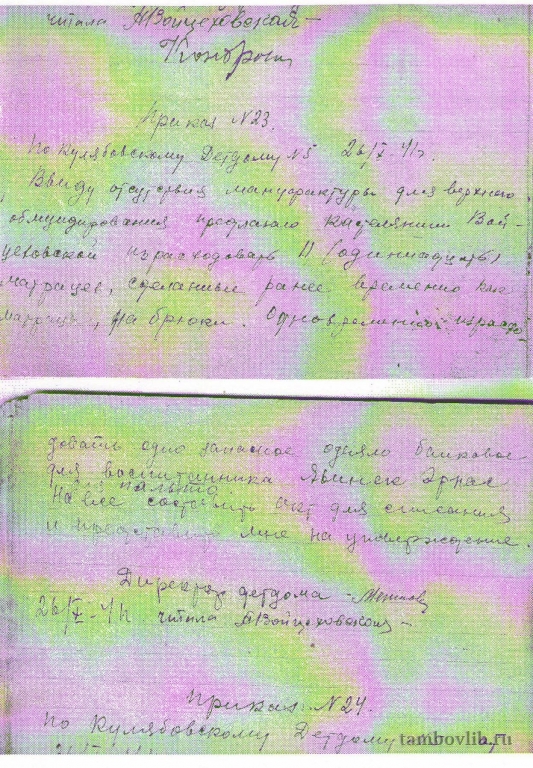 читала АВойцеховская –
Приказ N23.
По Кулябовскому Детдому N5 26/X-41г.
Ввиду отсутствия мануфактуры для верхнего
обмундирования предлагаю кастелянши Вой-
цеховской израсходовать 11 (одиннадцать)
матрацев, сделанные ранее временно как
матрацы, на брюки. Одновременно израсхо-
довать одно запасное одеяло байковое
для воспитанника Эрнас
на пальто
На все составить акт для списания
и представить мне на утверждение.
Директор детдома –
26/X-41г. читала АВойцеховская –
Приказ N24.
По Кулябовскому Детдому
tambovlib.ru